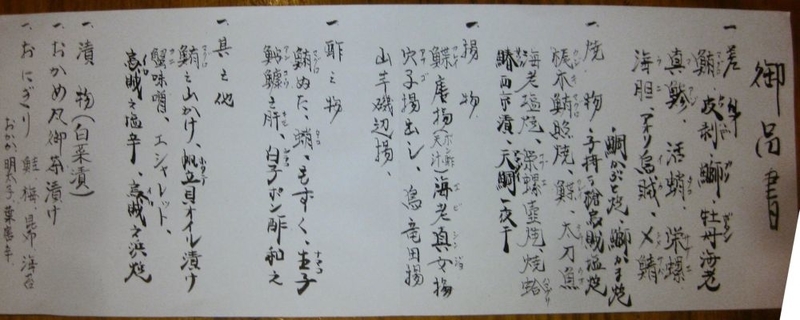 御品書
一、差身
鮪、皮剥、鰤、牡丹海老
真鯵、活蛸、栄螺
海胆、アオリ烏賊、〆鯖
鯛かぶと焼、鰤かま焼
一、焼物、子持ヤリ烏賊塩焼
鮪照焼、鰈、太刀魚
海老塩焼、栄螺壺焼、焼蛤
西京漬、天鯛一夜干
一、揚物
鰈唐揚(天汁)海老真女揚
穴子揚出し、烏竜田揚
山芋磯辺揚、
一、酢之物
鮪ぬた、蛸、もずく、生子
鮟鱇之肝、白子ポン酢和え
一、其之他
鮪之山かけ、帆立貝オイル漬け
蟹味噌、エシャレット、
烏賊之塩辛、烏賊之浜焼
一、漬物(白菜漬)
一、おかめ及御茶漬け
一、おにぎり 鮭 梅 昆布 海苔
おかか、明太子 葉唐辛